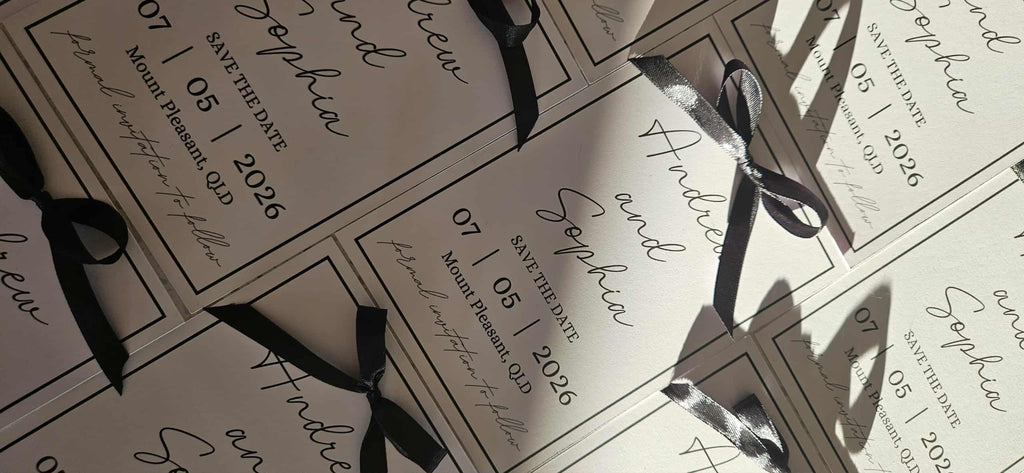 drew
and
Sophia
SAVE THE DATE
07 | 05 | 2026
Mount Pleasant, QLD
formal invitation to follow
follow
and
Sophia
SAVE THE DATE
07 | 05 | 2026
Mount Pleasant, QLD
formal invitation to follow
Andre
and
Sophia
SAVE THE DATE
07 | 05 | 2026
Mount Pleasant, QLD
formal invitation to follow
rew
Andre
an
So
and
Sophia
SAVE THE DATE
07 | 05 | 202
Mount Pleasant, QLD
And